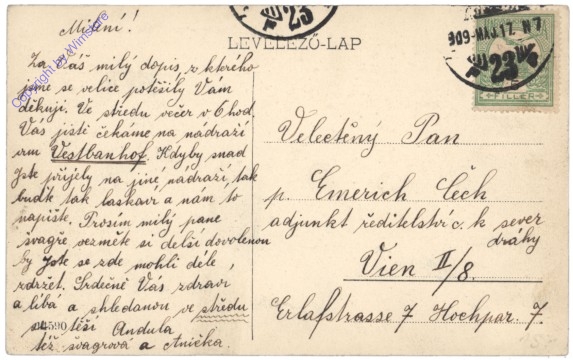 Milení!
Za Váš milý dopis z kterého
jsme se velice potěšily Vám
děkuji. Ve středu večer v 6 hod.
Vás jistě čekáme na nádraží
Vestbanhof. Kdyby snad
jste přijely na jiné nádraží, tak
buďte tak laskavi a nám to
napište. Prosím milý pane
švagře vezměte si delší dovolenou
by jste se zde mohli déle
zdržet. Srdečně Vás zdraví
a líbá a shledanou ve středu
se těší Andula
též švagrová a Anička.
LEVELEZŐ-LAP
909-MAJ.17. N7
23
23
FILLER
Velectěný Pan
p. Emerich Čech
adjunkt ředitelství c. k sever
dráhy
Vien II/8.
Erlafstrasse 7 Hochpar. 7.
4590
Copyright by Wimstore